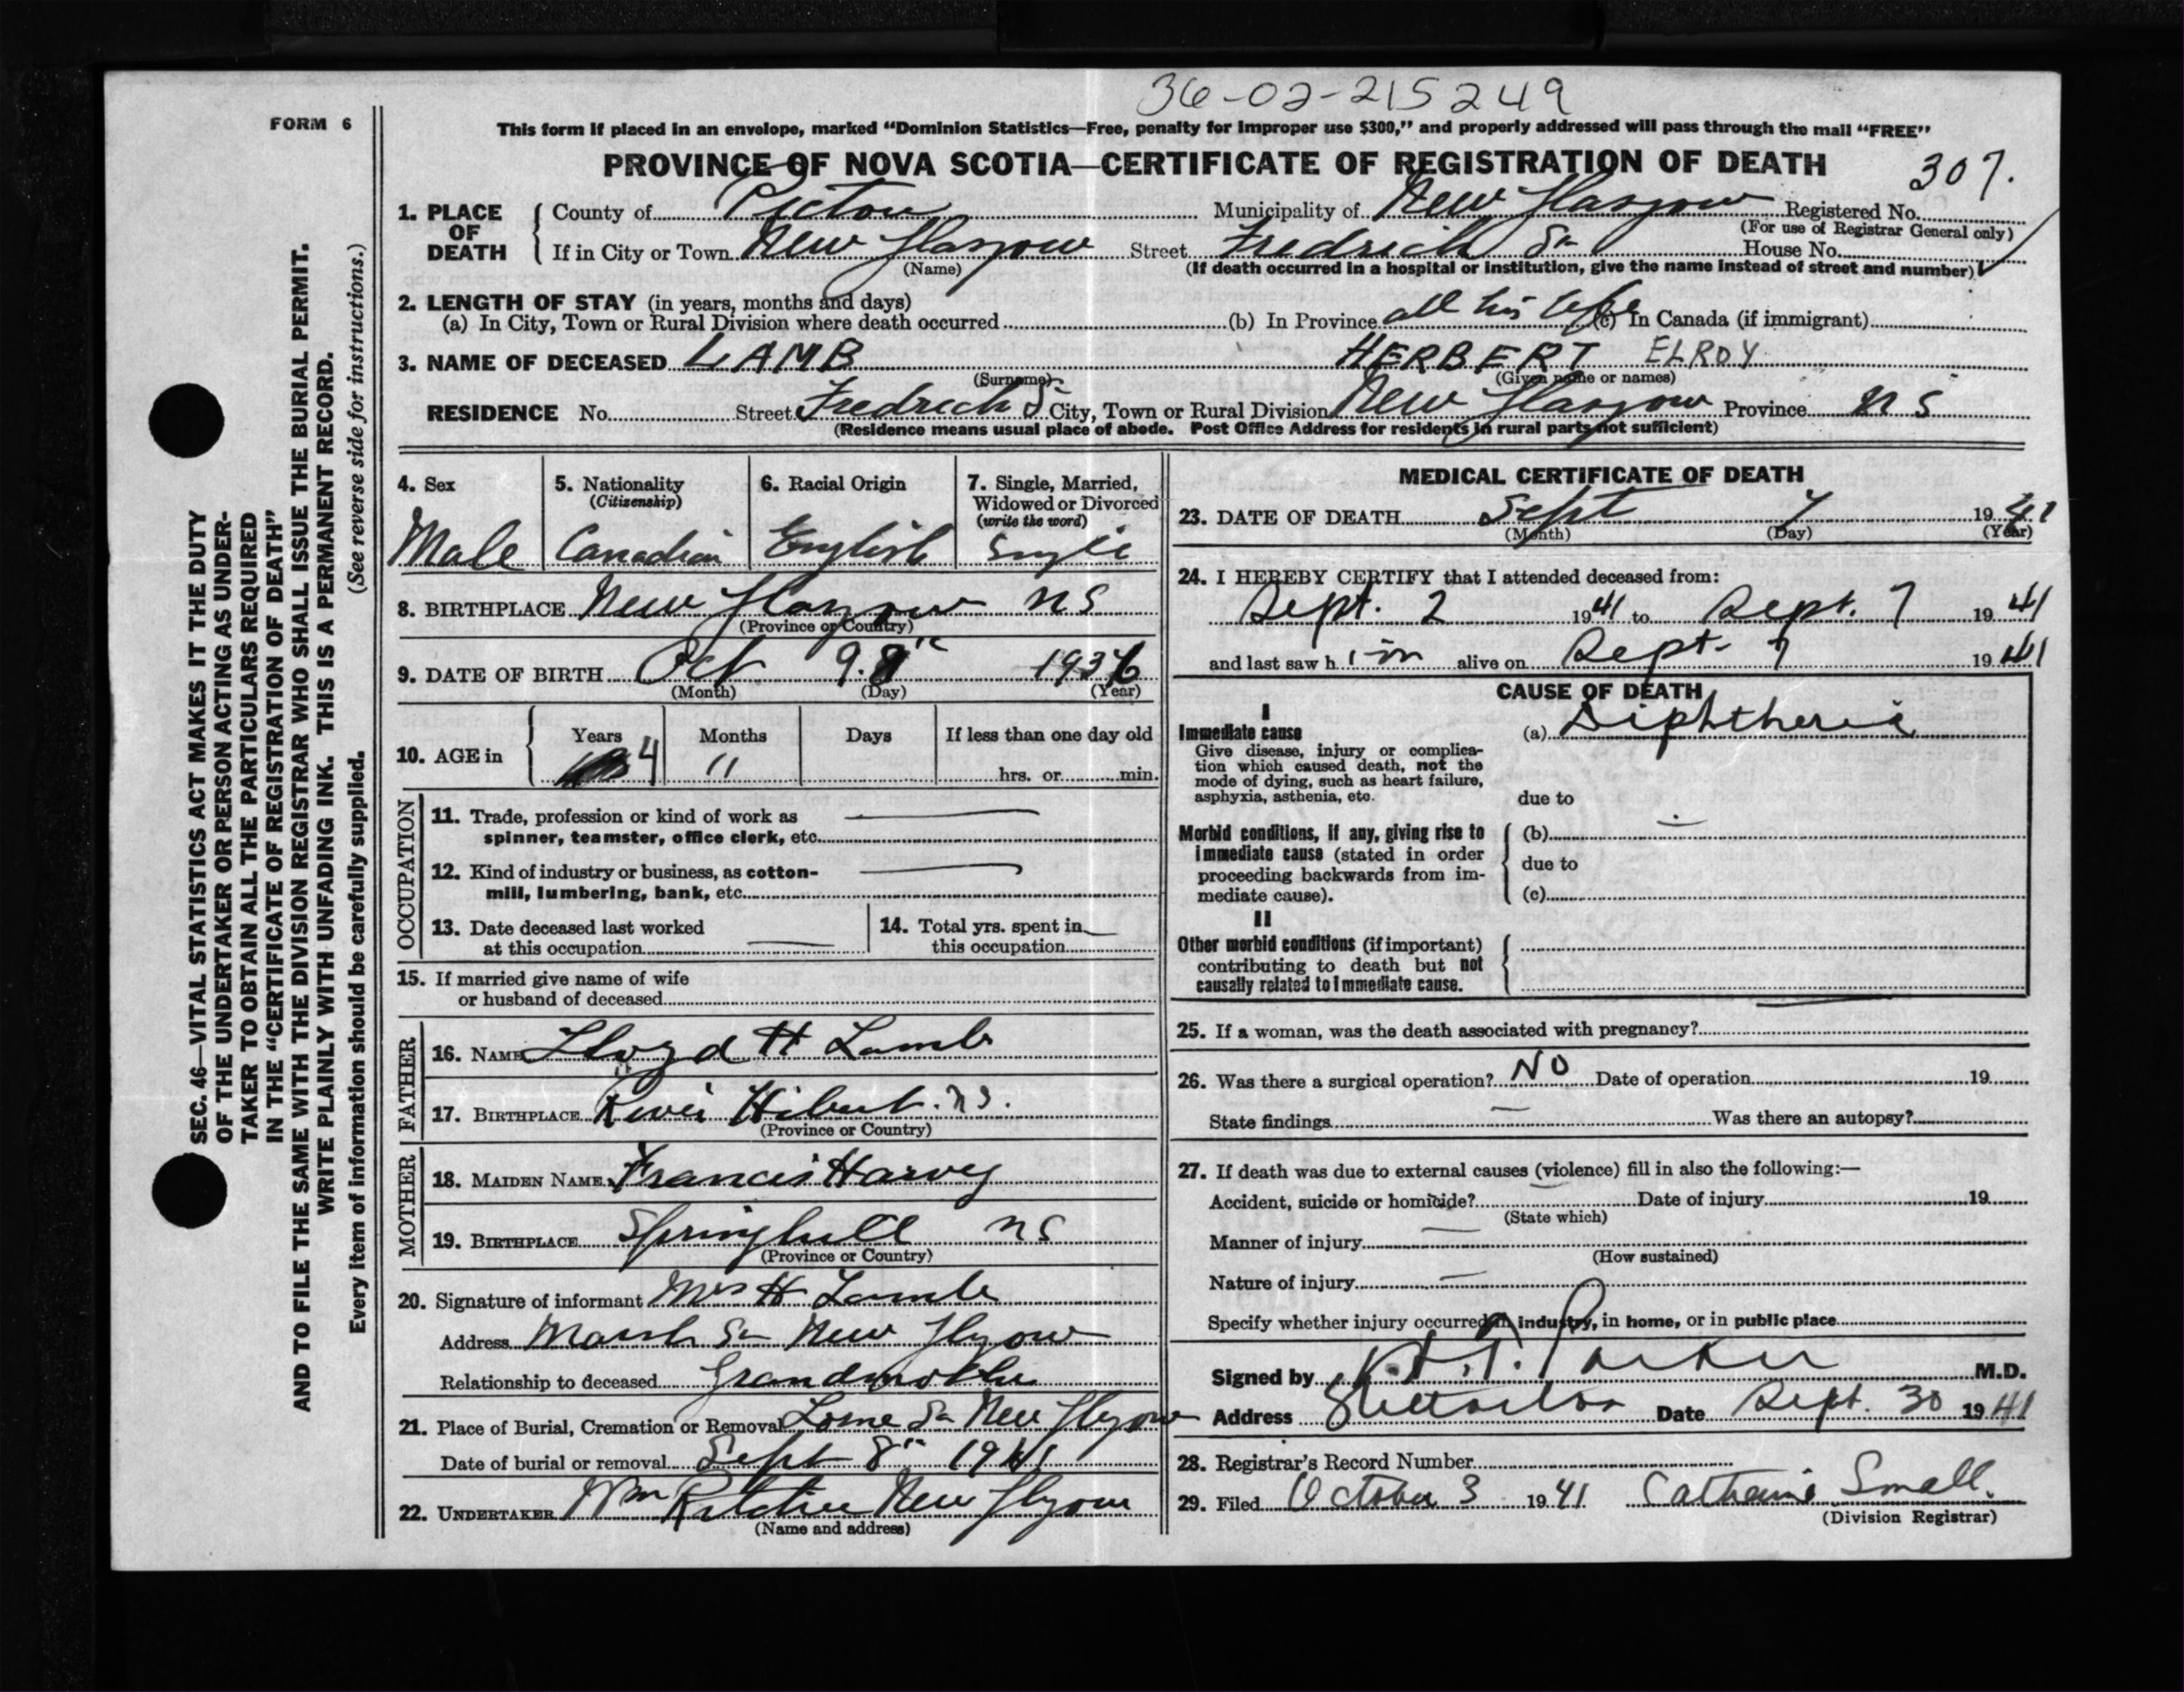 36-02-215249
FORM 6
This form if placed in an envelope, marked "Dominion Statistics—Free, penalty for improper use $300," and properly addressed will pass through the mail "FREE"
PROVINCE OF NOVA SCOTIA—CERTIFICATE OF REGISTRATION OF DEATH
307.
1. PLACE OF DEATH
County of Pictou Municipality of New Glasgow Registered No.
(For use of Registrar General only)
If in City or Town New Glasgow Street Fredrich St House No.
(Name)
(If death occurred in a hospital or institution, give the name instead of street and number)
2. LENGTH OF STAY (in years, months and days)
(a) In City, Town or Rural Division where death occurred (b) In Province all his life (c) In Canada (if immigrant)
3. NAME OF DECEASED LAMB HERBERT ELROY
(Surname) (Given name or names)
RESIDENCE No. Street Fredrich St City, Town or Rural Division New Glasgow Province N S
(Residence means usual place of abode. Post Office Address for residents in rural parts not sufficient)
4. Sex
Male
5. Nationality
(Citizenship)
Canadian
6. Racial Origin
English
7. Single, Married,
Widowed or Divorced
(write the word)
Single
8. BIRTHPLACE New Glasgow N S
(Province or Country)
9. DATE OF BIRTH Oct 9. 1936
(Month) (Day) (Year)
10. AGE in
Years Months Days If less than one day old
4 11 hrs. or min.
OCCUPATION
11. Trade, profession or kind of work as
spinner, teamster, office clerk, etc.
12. Kind of industry or business, as cotton-
mill, lumbering, bank, etc.
13. Date deceased last worked
at this occupation
14. Total yrs. spent in
this occupation
15. If married give name of wife
or husband of deceased
FATHER
16. NAME Lloyd H Lamb
17. BIRTHPLACE River Hibert. N.S.
(Province or Country)
MOTHER
18. MAIDEN NAME Francis Harvey
19. BIRTHPLACE Springhill N S
(Province or Country)
20. Signature of informant Mrs H Lamb
Address Marsh St New Glgow
Relationship to deceased Grandmother
21. Place of Burial, Cremation or Removal Lorne St New Glgow
Date of burial or removal Sept 8th 1941
22. UNDERTAKER Wm Ritchie New Glgow
(Name and address)
MEDICAL CERTIFICATE OF DEATH
23. DATE OF DEATH Sept 7 1941
(Month) (Day) (Year)
24. I HEREBY CERTIFY that I attended deceased from:
Sept. 2 1941 to Sept. 7 1941
and last saw h im alive on Sept. 7 1941
CAUSE OF DEATH
I
Immediate cause
Give disease, injury or complica-
tion which caused death, not the
mode of dying, such as heart failure,
asphyxia, asthenia, etc.
(a) Diphtheria
due to
Morbid conditions, if any, giving rise to
immediate cause (stated in order
proceeding backwards from im-
mediate cause).
(b)
due to
(c)
II
Other morbid conditions (if important)
contributing to death but not
causally related to immediate cause.
25. If a woman, was the death associated with pregnancy?
26. Was there a surgical operation? NO Date of operation 19
State findings Was there an autopsy?
27. If death was due to external causes (violence) fill in also the following:—
Accident, suicide or homicide? Date of injury 19
(State which)
Manner of injury
(How sustained)
Nature of injury
Specify whether injury occurred in industry, in home, or in public place
Signed by Parker M.D.
Address Date Sept. 30 1941
28. Registrar's Record Number
29. Filed October 3 1941 Catharine Small.
(Division Registrar)
SEC. 46—VITAL STATISTICS ACT MAKES IT THE DUTY
OF THE UNDERTAKER OR PERSON ACTING AS UNDER-
TAKER TO OBTAIN ALL THE PARTICULARS REQUIRED
IN THE "CERTIFICATE OF REGISTRATION OF DEATH"
AND TO FILE THE SAME WITH THE DIVISION REGISTRAR WHO SHALL ISSUE THE BURIAL PERMIT.
WRITE PLAINLY WITH UNFADING INK. THIS IS A PERMANENT RECORD.
Every item of information should be carefully supplied. (See reverse side for instructions.)